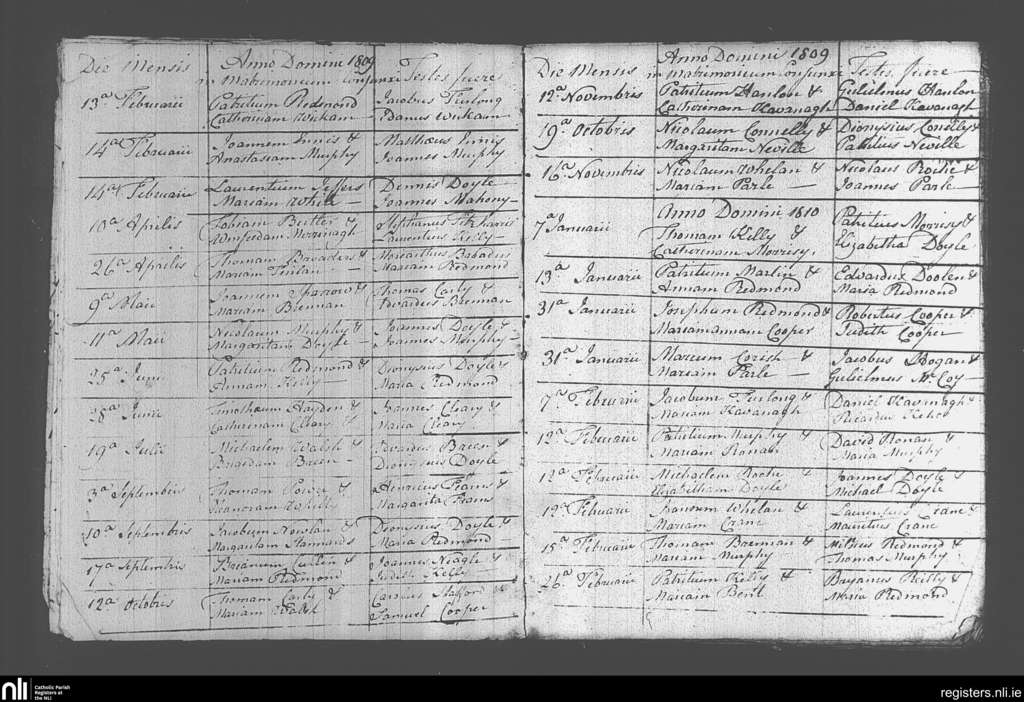 Die Mensis Anno Domini 1809
in Matrimonium Conjunxi Testes fuere
13a Februarii Patritium Redmond Jacobus Furlong
Catherinam Wickam Danus Wickam
14a Februarii Joannem Ennis & Matthæus Ennis
Anastasiam Murphy Joannes Murphy
14a Februarii Laurentium Jeffers Dennis Doyle
Mariam White Joannes Mahony
10a Aprilis Fabiam Butler & Stephanus
Laurentius Kelly
26a Aprilis Thomam &
Mariam Mariam Redmond
9a Maii Joannem Sparrow & Thomas Carty &
Mariam Brennan Edvardus Brennan
11a Maii Nicolaum Murphy & Joannes Doyle &
Margaritam Doyle Joannes Murphy
25a Junii Patritium Redmond & Dionysius Doyle
Annam Kelly Maria Redmond
Junii Timothæum Hayden & Joannes Cleary &
Catherinam Cleary Maria Cleary
19a Julii Michaelem Walsh & Breen &
Brigidam Breen Dionysius Doyle
3a Septembris Thomam Power & Henricus
Margarita
10a Septembris Jacobum Nowlan & Dionysius Doyle &
Margaritam Maria Redmond
17a Septembris Cullen & Joannes Neagle &
Mariam Redmond Judith Kelly
12a Octobris Thomam Carty & Carolus Stafford
Mariam Walsh Samuel Cooper
Die Mensis Anno Domini 1809
in Matrimonium Conjunxi Testes fuere
12a Novembris Patritium Hanlon & Gulielmus Hanlon
Catherinam Kavanagh Daniel Kavanagh
19a Octobris Nicolaum Connelly & Dionysius Connelly &
Margaritam Neville Patritius Neville
16a Novembris Nicolaum Whelan & Nicolaus Roche &
Mariam Parle Joannes Parle
Anno Domini 1810
7a Januarii Thomam Kelly & Patritius Morrisey &
Catherinam Morrisy Elizabetha Doyle
13a Januarii Patritium Martin & Edvardus Doolen &
Annam Redmond Maria Redmond
31a Januarii Josephum Redmond & Robertus Cooper &
Mariamannam Cooper Judith Cooper
31a Januarii Marcum Corish & Jacobus Hogan &
Mariam Parle Gulielmus McCoy
7a Februarii Jacobum Furlong & Daniel Kavanagh &
Mariam Kavanagh Ricardus Kehoe
12a Februarii Patritium Murphy & David Ronan &
Mariam Ronan Maria Murphy
12a Februarii Michaelem Roche & Joannes Doyle &
Elizabetham Doyle Michael Doyle
12a Februarii Joannem Whelan & Laurentius Crane &
Mariam Crane Mauritius Crane
15a Februarii Thomam Brennan & Redmond &
Mariam Murphy Thomas Murphy
26a Februarii Patritium Reily & Bryanus Reilly &
Mariam Bent Maria Redmond
nli Catholic Parish
Registers at
the NLI
registers.nli.ie